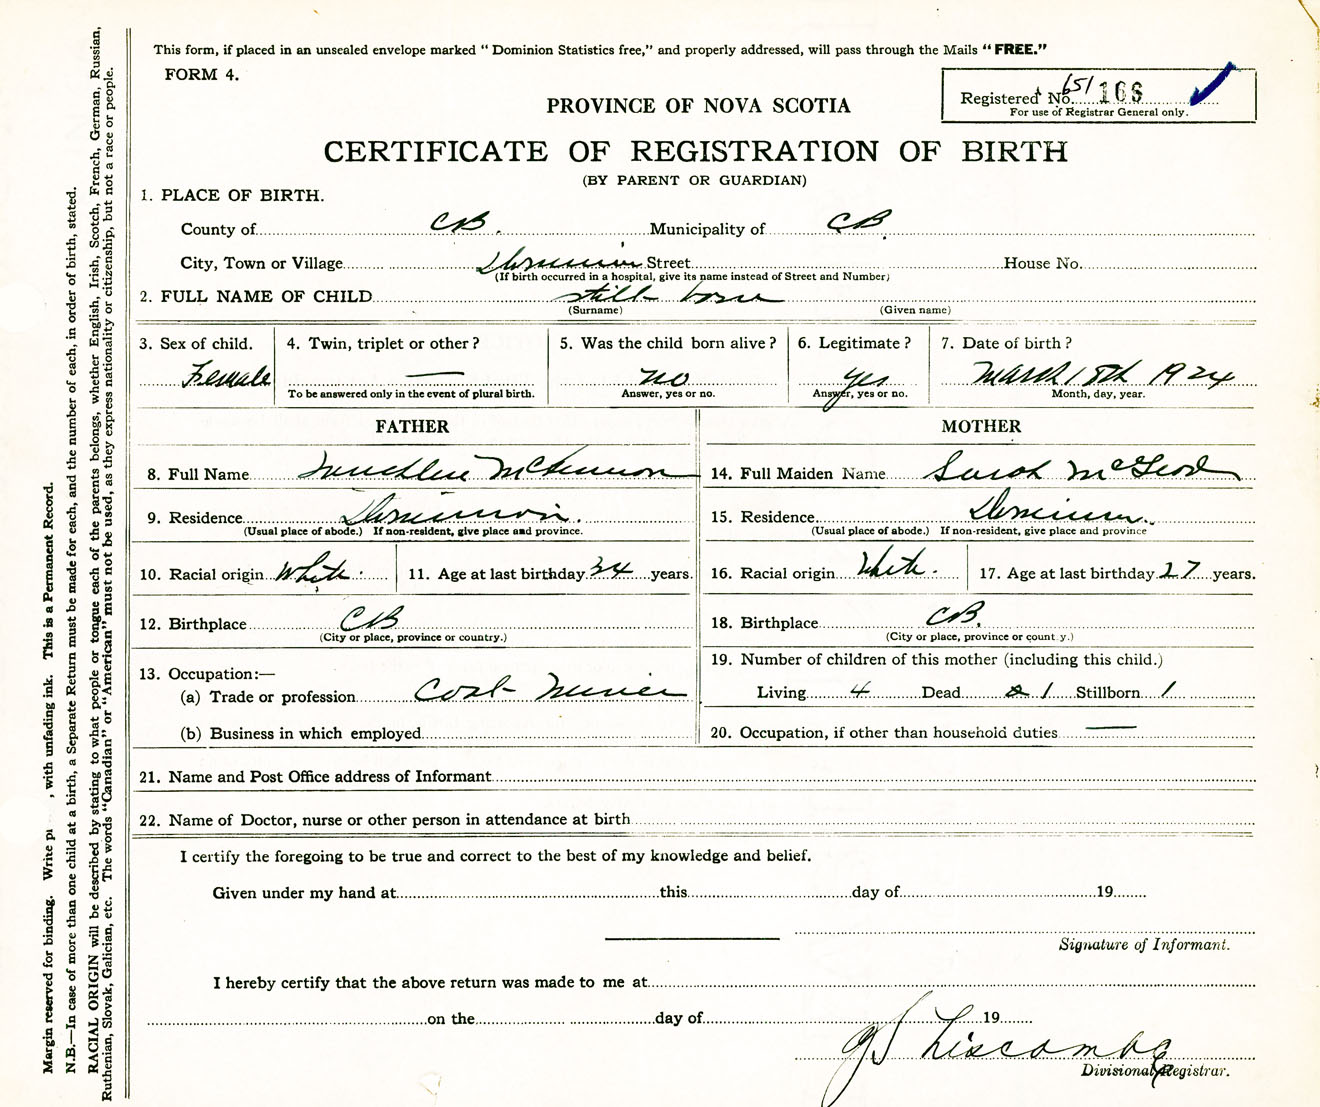 This form, if placed in an unsealed envelope marked "Dominion Statistics free," and properly addressed, will pass through the Mails "FREE."
FORM 4.
Registered No. 651 166
For use of Registrar General only.
PROVINCE OF NOVA SCOTIA
CERTIFICATE OF REGISTRATION OF BIRTH
(BY PARENT OR GUARDIAN)
1. PLACE OF BIRTH.
County of CB. Municipality of CB.
City, Town or Village Dominion Street House No.
(If birth occurred in a hospital, give its name instead of Street and Number)
2. FULL NAME OF CHILD still born
(Surname) (Given name)
3. Sex of child. 4. Twin, triplet or other? 5. Was the child born alive? 6. Legitimate? 7. Date of birth?
Female — no yes March 18th 1924
To be answered only in the event of plural birth. Answer, yes or no. Answer, yes or no. Month, day, year.
FATHER MOTHER
8. Full Name McKinnon 14. Full Maiden Name Sarah McLeod
9. Residence Dominion. 15. Residence Dominion.
(Usual place of abode.) If non-resident, give place and province. (Usual place of abode.) If non-resident, give place and province
10. Racial origin White. 11. Age at last birthday 34 years. 16. Racial origin White. 17. Age at last birthday 27 years.
12. Birthplace CB 18. Birthplace CB.
(City or place, province or country.) (City or place, province or country.)
13. Occupation:— 19. Number of children of this mother (including this child.)
(a) Trade or profession Coal Miner Living 4 Dead 1 Stillborn 1
(b) Business in which employed 20. Occupation, if other than household duties —
21. Name and Post Office address of Informant
22. Name of Doctor, nurse or other person in attendance at birth
I certify the foregoing to be true and correct to the best of my knowledge and belief.
Given under my hand at this day of 19
Signature of Informant.
I hereby certify that the above return was made to me at
on the day of 19
Liscombe
Divisional Registrar.
Margin reserved for binding. Write , with unfading ink. This is a Permanent Record.
N.B.—In case of more than one child at a birth, a Separate Return must be made for each, and the number of each, in order of birth, stated.
RACIAL ORIGIN will be described by stating to what people or tongue each of the parents belongs, whether English, Irish, Scotch, French, German, Russian,
Ruthenian, Slovak, Galician, etc. The words "Canadian" or "American" must not be used, as they express nationality or citizenship, but not a race or people.